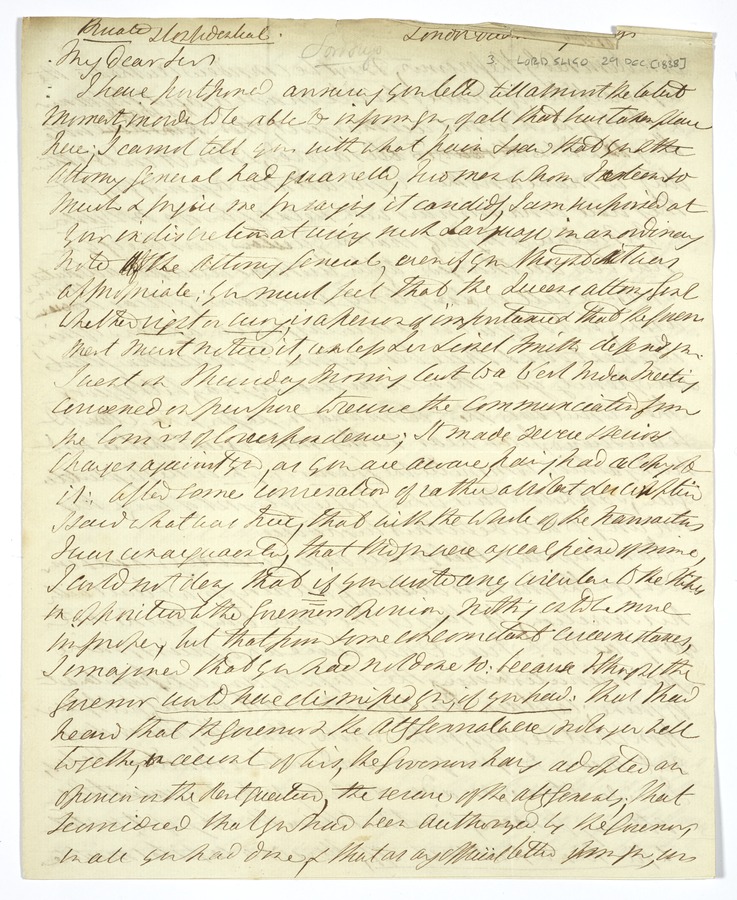 Private & Confidential. London
Sordago
3 LORD SLIGO 29 DEC [1838]
My dear Sir
I have postponed answering your letter till almost the latest
moment, in order to be able to inform you of all that has taken place
here; I cannot tell you with what pain I saw that you & the
Attorney General had quarrelled, two men whom I esteem so
much & forgive me for saying it candidly, I am surprised at
your indiscretion at using such Language, in an ordinary
note to the Attorney General, even if you thought it was
appropriate: you must feel that the Queens Attorney Genl
whether right or wrong, is a person of importance & that the Govern
ment must notice it, unless Sir Lionel Smith defends you.
I went on Thursday Morning last to a West India Meeting
convened on purpose to receive the Communication from
the Comrs of Correspondence; It made severe serious
charges against you, as you are aware having had a copy of
it: after some conversation of rather a violent description
I said what was true, that with the whole of the transactions
I was unacquainted, that though you were a great friend of mine,
I could not deny that if you wrote any circular to the
in opposition to the Governors opinion, nothing could be more
improper, but that from some concomitant circumstances,
I imagined that you had not done so: because I thought the
Governor would have dismissed you, if you had: that I had
heard that the Governor & the Att General were no longer well
together, on account of his, the Governor having adopted an
opinion on the Rent question, the reverse of the Att General; that
I considered that you had been authorized by the Governor,
in all you had done, & that as any official letter from you, was